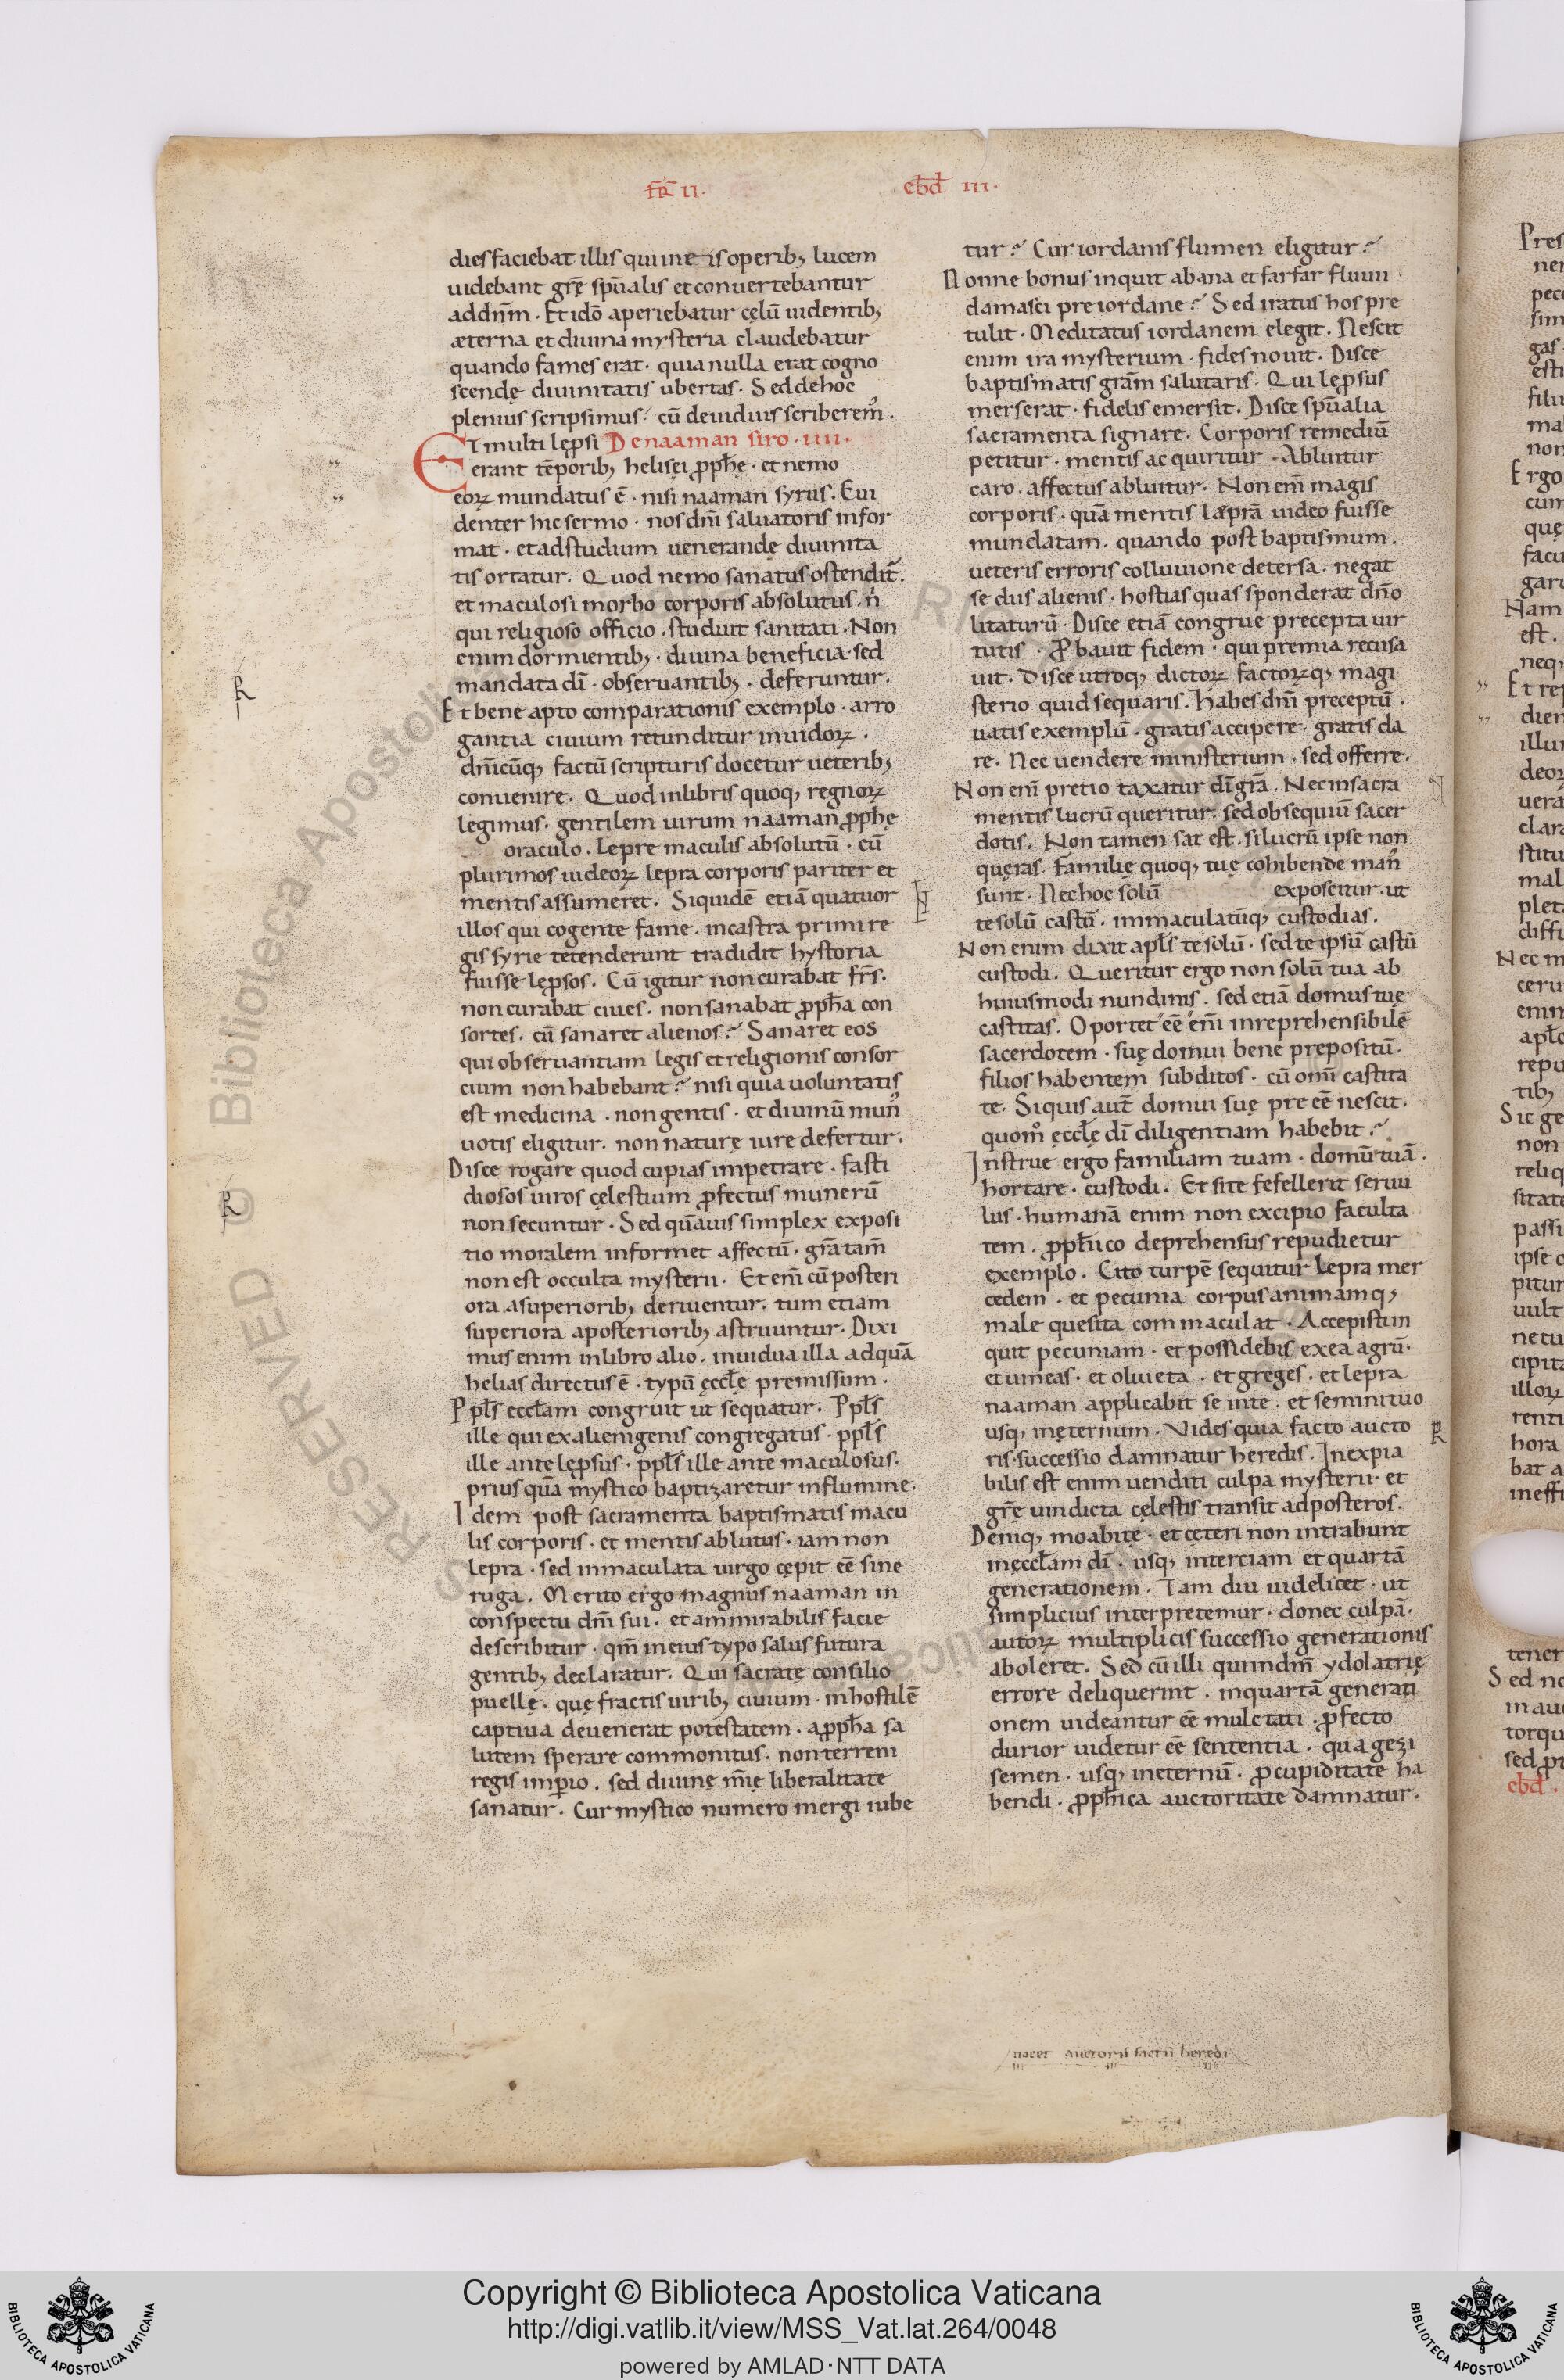 fr̄ II. ebd̄ III.
dies faciebat illis qui in eis operibꝫ lucem
uidebant gr̄ę sp̄ualis et conuertebantur
ad dn̄m . Et idō aperiebatur cęlū uidentibꝫ
æterna et diuina mysteria claudebatur
quando fames erat . quia nulla erat cogno
scendę diuinitatis ubertas . Sed de hoc
plenius scripsimus ; cū de uiduis scriberem᷒ .
Et multi lępsi De naaman siro . IIII .
erant tēporibꝫ helisęi ꝓph̄ę . et nemo
eoꝝ mundatus ē . nisi naaman syrus . Eui
denter hic sermo . nos dn̄i saluatoris infor
mat . et ad studium uenerandę diuinita
tis ortatur . Quod nemo sanatus ostendit̄ .
et maculosi morbo corporis absolutus . n̍
qui religioso officio . studuit sanitati . Non
enim dormientibꝫ . diuina beneficia . sed
mandata dī . obseruantibꝫ . deferuntur .
Et bene apto comparationis exemplo . arro
gantia ciuium retunditur inuidoꝝ .
dn̄icūqꝫ factū scripturis docetur ueteribꝫ
conuenire . Quod in libris quoqꝫ regnoꝝ
legimus . gentilem uirum naaman ꝓph̄ę
oraculo . lepre maculis absolutū . cū
plurimos iudeoꝝ lepra corporis pariter et
mentis assumeret . Siquidē etiā quatuor
illos qui cogente fame . in castra primi re
gis syrie tetenderunt tradidit hystoria
fuisse lępsos . Cū igitur non curabat fr̄s .
non curabat ciues . non sanabat ꝓph̄a con
sortes . cū sanaret alienos ? Sanaret eos
qui obseruantiam legis et religionis consor
cium non habebant ? nisi quia uoluntatis
est medicina . non gentis . et diuinū mun᷒
uotis eligitur . non naturę iure defertur .
Disce rogare quod cupias impetrare . fasti
diosos uiros cęlestium ꝓfectus munerū
non secuntur . Sed quāuis simplex exposi
tio moralem informet affectū . gr̄a tam̄
non est occulta mysterii . Et eni̅ cū posteri
ora a superioribꝫ deriuentur . tum etiam
superiora a posterioribꝫ astruuntur . Dixi
mus enim in libro alio . inuidua illa ad quā
helias directus ē . typū ęccl̄ę premissum .
Ppl̄s eccl̄am congruit ut sequatur . Ppl̄s
ille qui ex alienigenis congregatus . ppl̄s
ille ante lępsus . ppl̄s ille ante maculosus .
prius quā mystico baptizaretur in flumine .
Idem post sacramenta baptismatis macu
lis corporis . et mentis ablutus . iam non
lepra . sed inmaculata uirgo cępit eē̄ sine
ruga . Merito ergo magnus naaman in
conspectu dn̄i sui . et ammirabilis facie
describitur . qm̄ in eius typo salus futura
gentibꝫ declaratur . Qui sacratę consilio
puellę . quę fractis uiribꝫ ciuium . in hostilē
captiua deuenerat potestatem . a ꝓph̄a sa
lutem sperare commonitus . non terreni
regis imp̱io . sed diuinę m̄ię liberalitate
sanatur . Cur mystico numero mergi iube
tur ? Cur iordanis flumen eligitur ?
Nonne bonus inquit abana et farfar fluuii
damasci pre iordane ? Sed iratus hos pre
tulit . Meditatus iordanem elegit . Nescit
enim ira mysterium . fides nouit . Disce
baptismatis grām salutaris . Qui lepsus
merserat . fidelis emersit . Disce sp̄ualia
sacramenta signare . Corporis remediū
petitur . mentis acquiritur . Abluitur
caro . affectus abluitur . Non em̄ magis
corporis . quā mentis læprā uideo fuisse
mundatam . quando post baptismum .
ueteris erroris colluuione detersa . negat
se diis alienis . hostias quas sponderat dn̄o
litaturū . Disce etiā congrue precepta uir
tutis . Ꝓbauit fidem . qui premia recusa
uit . Disce utroqꝫ dictoꝝ factoꝝqꝫ magi
sterio quid sequaris . Habes dn̄i preceptū .
uatis exemplū . gratis accipere . gratis da
re . Nec uendere ministerium . sed offerre .
Non eni̅ pretio taxatur dī gr̄a . Nec in sacra
mentis lucrū queritur . sed obsequiū sacer
dotis . Non tamen sat est . si lucrū ipse non
quęras . Familię quoqꝫ tuę cohibende man᷒
sunt . Nec hoc solū exposcitur . ut
te solū castū . immaculatūqꝫ custodias .
Non enim dixit apl̄s te solū . sed te ipsū castū
custodi . Queritur ergo non solū tua ab
huiusmodi nundinis . sed etiā domus tuę
castitas . Oportet eē̄ eni̅ inreprehensibilē
sacerdotem . suę domui bene prepositū .
filios habentem subditos . cū omi̅ castita
te . Siquis aut̄ domui suę pre eē̄ nescit .
quom̊ ęccl̄ę dī diligentiam habebit ?
Instrue ergo familiam tuam . domū tuā .
hortare . custodi . Et si te fefellerit seruu
lus . humanā enim non excipio faculta
tem . ꝓph̄ico deprehensus repudietur
exemplo . Cito turpē sequitur lepra mer
cedem . et pecunia corpus animamqꝫ
male quesita commaculat . Accepisti in
quit pecuniam . et possidebis ex ea agrū .
et uineas . et oliueta . et greges . et lepra
naaman applicabit se in te . et semini tuo
usqꝫ in ęternum . Vides quia facto aucto
ris . successio damnatur heredis . Inexpia
bilis est enim uenditi culpa mysterii . et
gr̄ę uindicta cęlestis transit ad posteros .
Deniqꝫ moabitę . et cęteri non intrabunt
in ęccl̄am dī . usqꝫ in terciam et quartā
generationem . Tam diu uidelicet . ut
simplicius interpretemur . donec culpā .
autoꝝ multiplicis successio generationis
aboleret . Sed cū illi qui in dm̄ ydolatrię
errore deliquerint . in quartā generati
onem uideantur eē̄ mulctati . ꝓfecto
durior uidetur eē̄ sententia . qua gezi
semen . usqꝫ in eternū . ꝓ cupiditate ha
bendi . ꝓph̄ica auctoritate damnatur .
nocet auctoris factū heredi
Copyright © Biblioteca Apostolica Vaticana
http://digi.vatlib.it/view/MSS_Vat.lat.264/0048
powered by AMLAD·NTT DATA